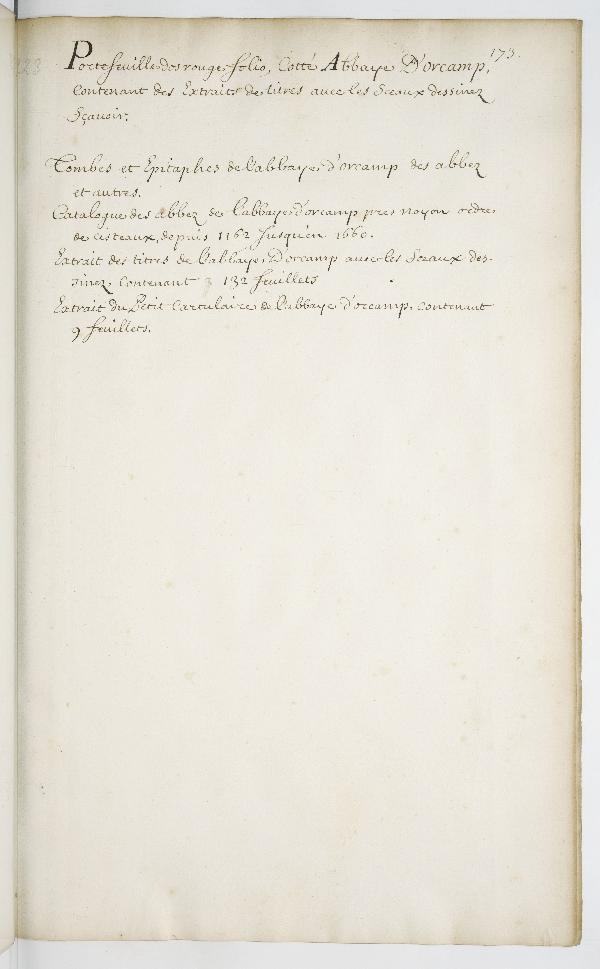 173.
Portefeuille dos rouge folio, Cotté Abbaye D'orcamp,
Contenant des Extraits de titres avec les Sceaux dessinez
Sçavoir;
Tombes et Epitaphes de l'abbaye d'orcamp des abbez
et autres.
Catalogue des abbez de l'abbaye d'orcamp pres noyon ordre
de cisteaux, depuis 1162 jusqu'en 1660.
Extrait des titres de l'abbaye D'orcamp avec les Sceaux des-
sinez, contenant 132 feuillets
Extrait du Petit Cartulaire de l'abbaye d'orcamp, contenant
9 feuillets.